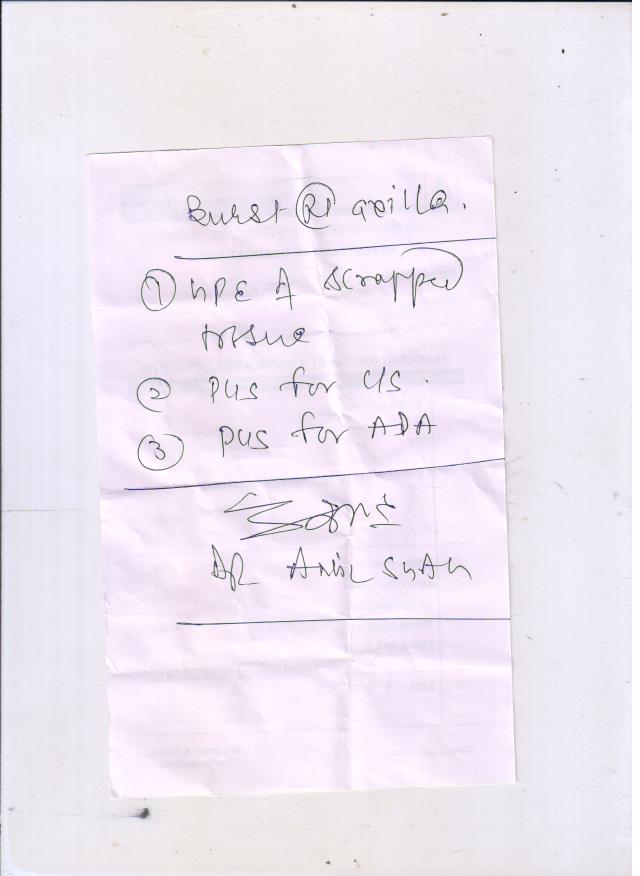 Burst Rt axilla.
① HPE of scrapped
tissue
② Pus for C/S.
③ Pus for ADA
DR ANIL SHAH